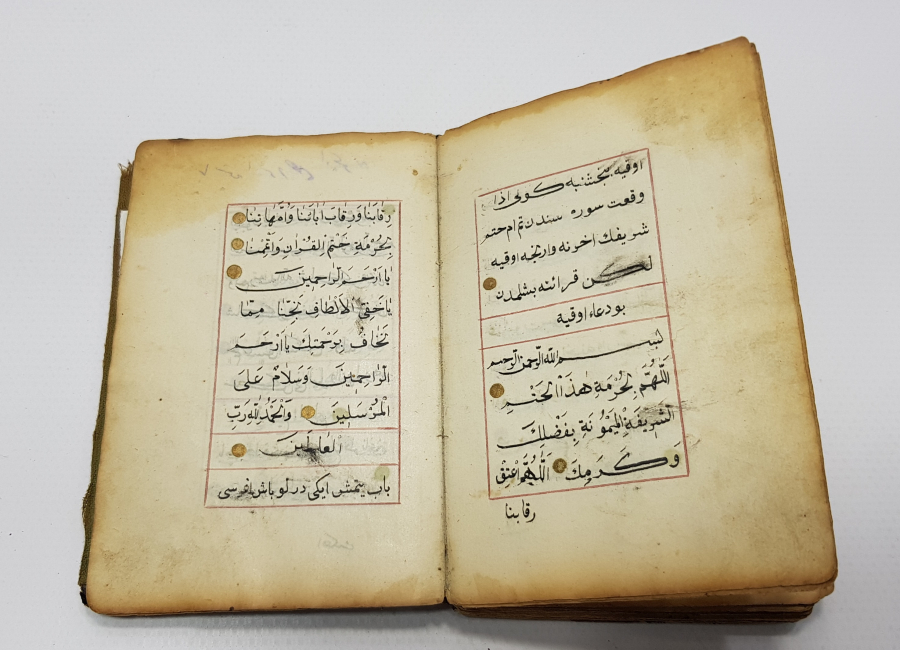 اوقيه پنجشنبه كونى اذا
وقعت سوره سندن تمام ختم
شريفك اخرنه وارنجه اوقيه
لكن قرائته بشلمدن
بو دعاء اوقيه
بسم الله الرحمن الرحيم
اَللّٰهُمَّ بِحُرْمَةِ هٰذَا الْخَتْمِ
الشَّرِيفَةِ الْمَيْمُونَةِ بِفَضْلِكَ
وَكَرَمِكَ اَللّٰهُمَّ اَعْتِقْ
رقابنا
رِقَابَنَا وَرِقَابَ اٰبَائِنَا وَاُمَّهَاتِنَا
بِحُرْمَةِ خَتْمِ الْقُرْاٰنِ وَ
يَا اَرْحَمَ الرَّاحِمِينَ
يَا خَفِىَّ الْاَلْطَافِ نَجِّنَا مِمَّا
نَخَافُ بِرَحْمَتِكَ يَا اَرْحَمَ
الرَّاحِمِينَ وَسَلَامٌ عَلَى
الْمُرْسَلِينَ وَالْحَمْدُ لِلّٰهِ رَبِّ
الْعَالَمِينَ
باب يتمش ايكى درلو باش اغرسى